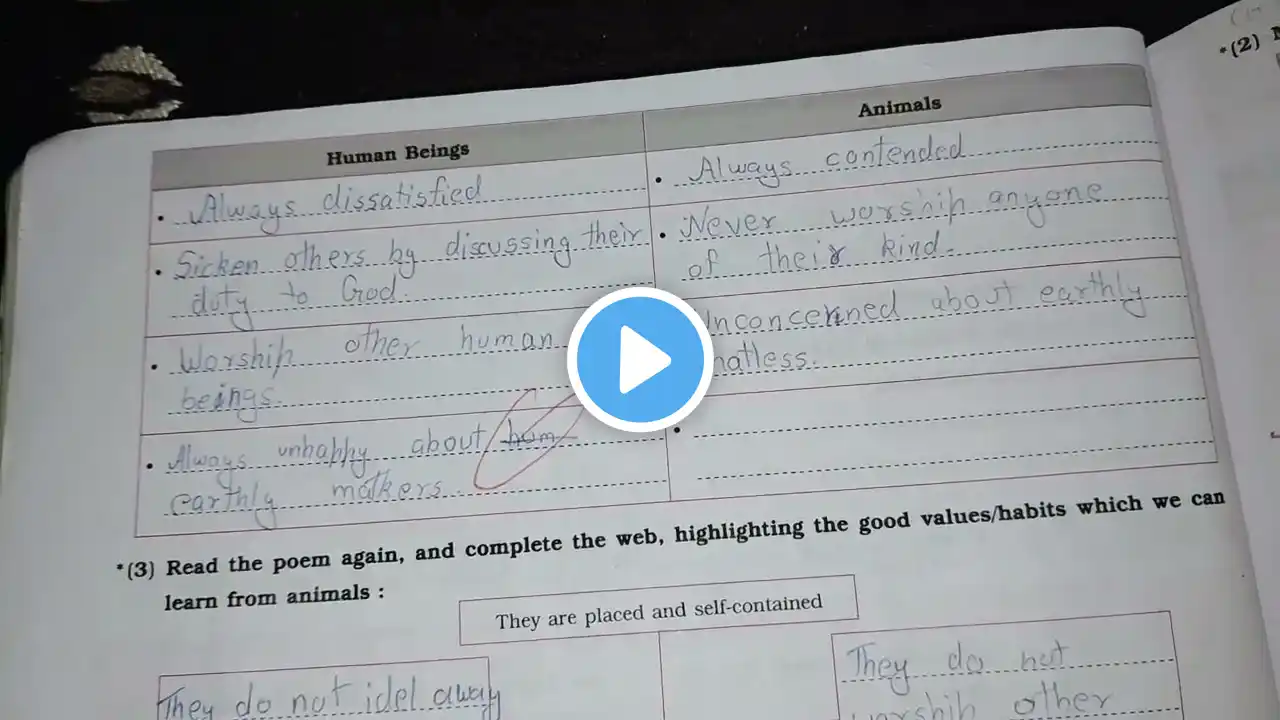 *(2)
Human Beings
Animals
• Always dissatisfied
• Always contended
• Sicken others by discussing their
duty to God.
• Never worship anyone
of their kind.
• Worship other human
beings.
Unconcerned about earthly
• Always unhappy about hum
earthly
•
*(3) Read the poem again, and complete the web, highlighting the good values/habits which we can
learn from animals :
They are placed and self-contained
They do not idel away
They do not
worship other